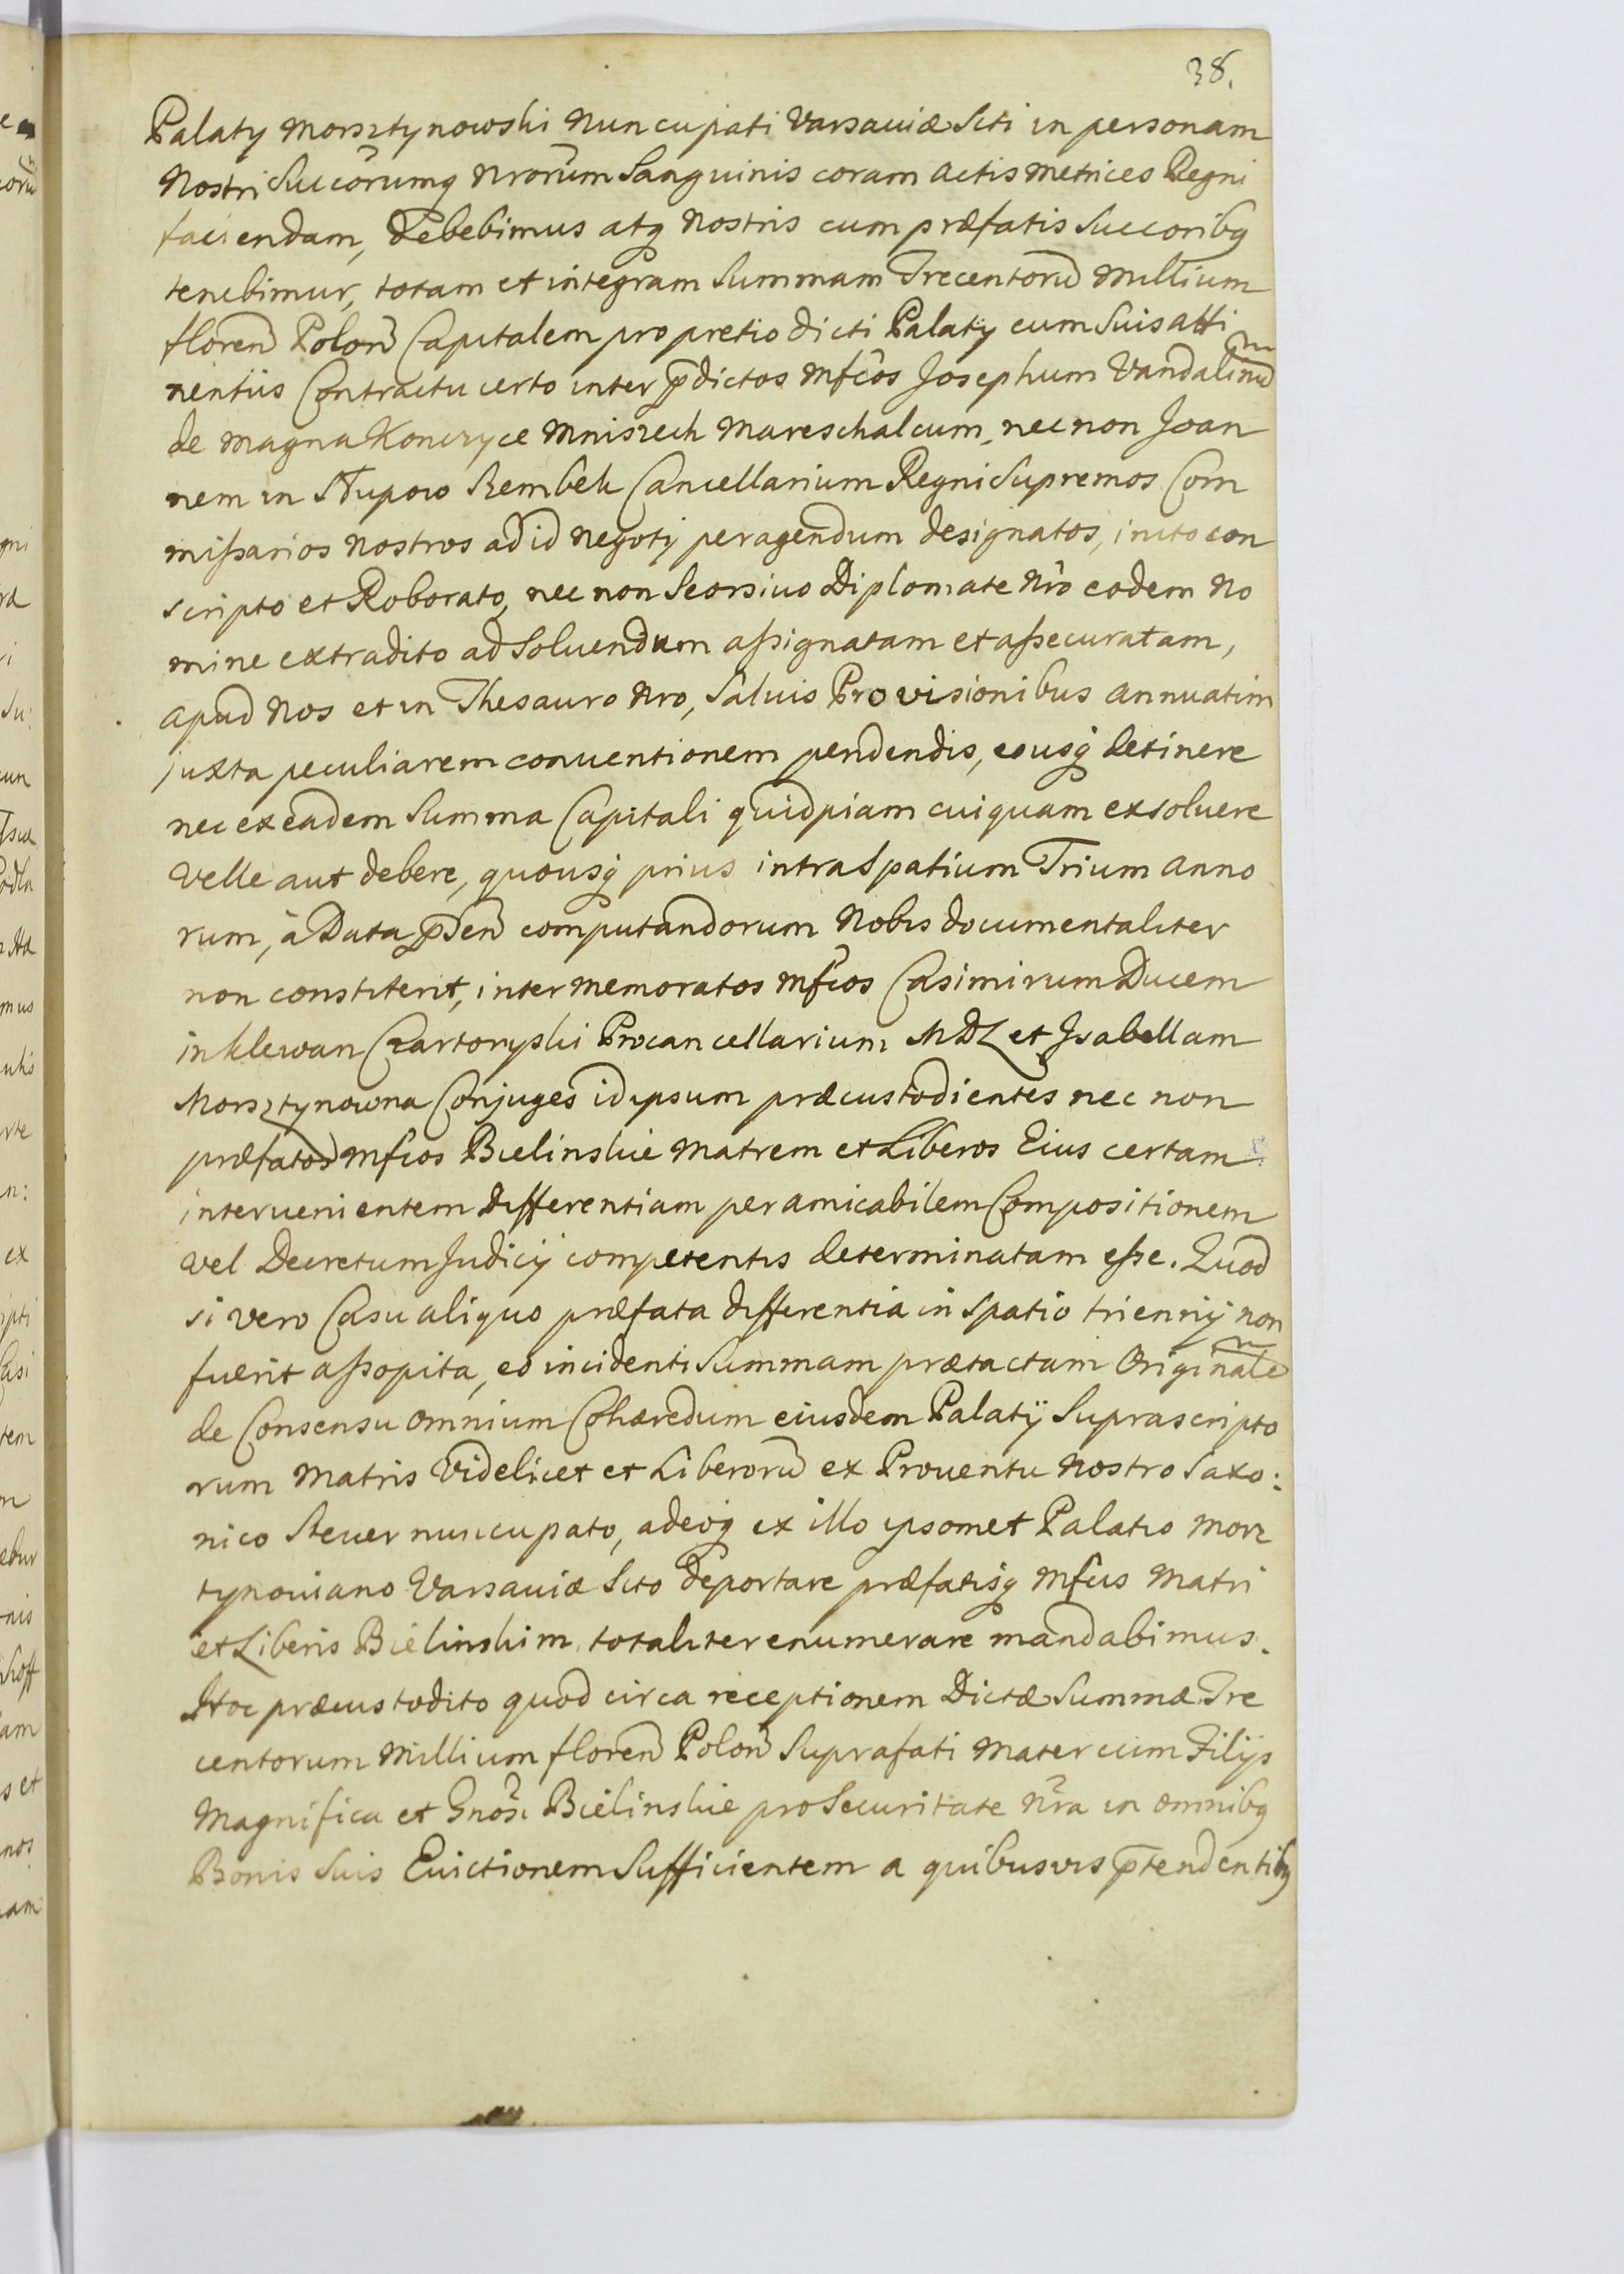 38.
Palaty Morsztynowski Nuncupati Varsaviæ Siti in personam
Nostri Succorumq Nrorum Sanguinis coram Actis Metrices Regni
faciendam, Debebimus atq Nostris cum præfatis Succoribq
tenebimur, totam et integram Summam Trecentorū Millium
floren Polon Capitalem pro pretio dicti Palaty cum Suis atti
nentiis Contractu certo inter pdictos Mfcos Josephum Vandalinū
de Magna Konczyce Mniszech Mareschalcum, nec non Joan
nem in Słupow Szembek Cancellarium Regni Supremos Com
missarios Nostros ad id Negoty peragendum designatos, inito con
scripto et Roborato, nec non Seorsivo Diplomate Nro eodem No
mine extradito ad Solvendum assignatam et assecuratam,
apud Nos et in Thesauro Nro, Salvis Provisionibus annuatim
juxta peculiarem conventionem pendendis, eousq detinere
nec ex eadem Summa Capitali quidpiam cuiquam exsoluere
Velle aut debere, quousq prius intra Spatium Trium Anno
rum, à Data pden computandorum Nobis documentaliter
non constiterit, inter Memoratos Mfcos Casimirum Ducem
in Klewan Czartoryski Procancellarium MDL et Isabellam
Morsztynowna Conjuges id ipsum præcustodientes nec non
præfatos Mfcos Bielinskie Matrem et Liberos Eius certam
intervenientem Differentiam per amicabilem Compositionem
vel Decretum Judicij competentis determinatam esse. Quod
si vero Casu aliquo præfata differentia in Spatio triennij non
fuerit assopita, eo incidenti Summam prætactam Originale
de Consensu omnium Cohæredum eiusdem Palatij Suprascripto
rum Matris Videlicet et Liberorū ex Proventu Nostro Saxo:
nico Steuer nuncupato, adeoq ex illo ipsomet Palatio Morz
tynoviano Varsaviæ Sito deportare præfatisq Mfcis Matri
et Liberis Bielinskim totaliter enumerare mandabimus.
Hoc præcustodito quod circa receptionem Dictæ Summæ Tre
centorum Millium floren Polon Suprafati Mater cum Filijs
Magnifica et Gnosi Bielinskie pro Securitate Nra in omnibq
Bonis Suis Evictionem Sufficientem a quibusvis ptendentibq